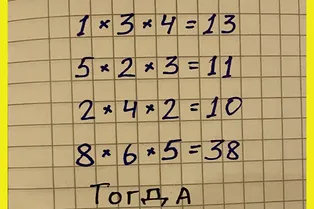 1 * 3 * 4 = 13
5 * 2 * 3 = 11
2 * 4 * 2 = 10
8 * 6 * 5 = 38
Тогда